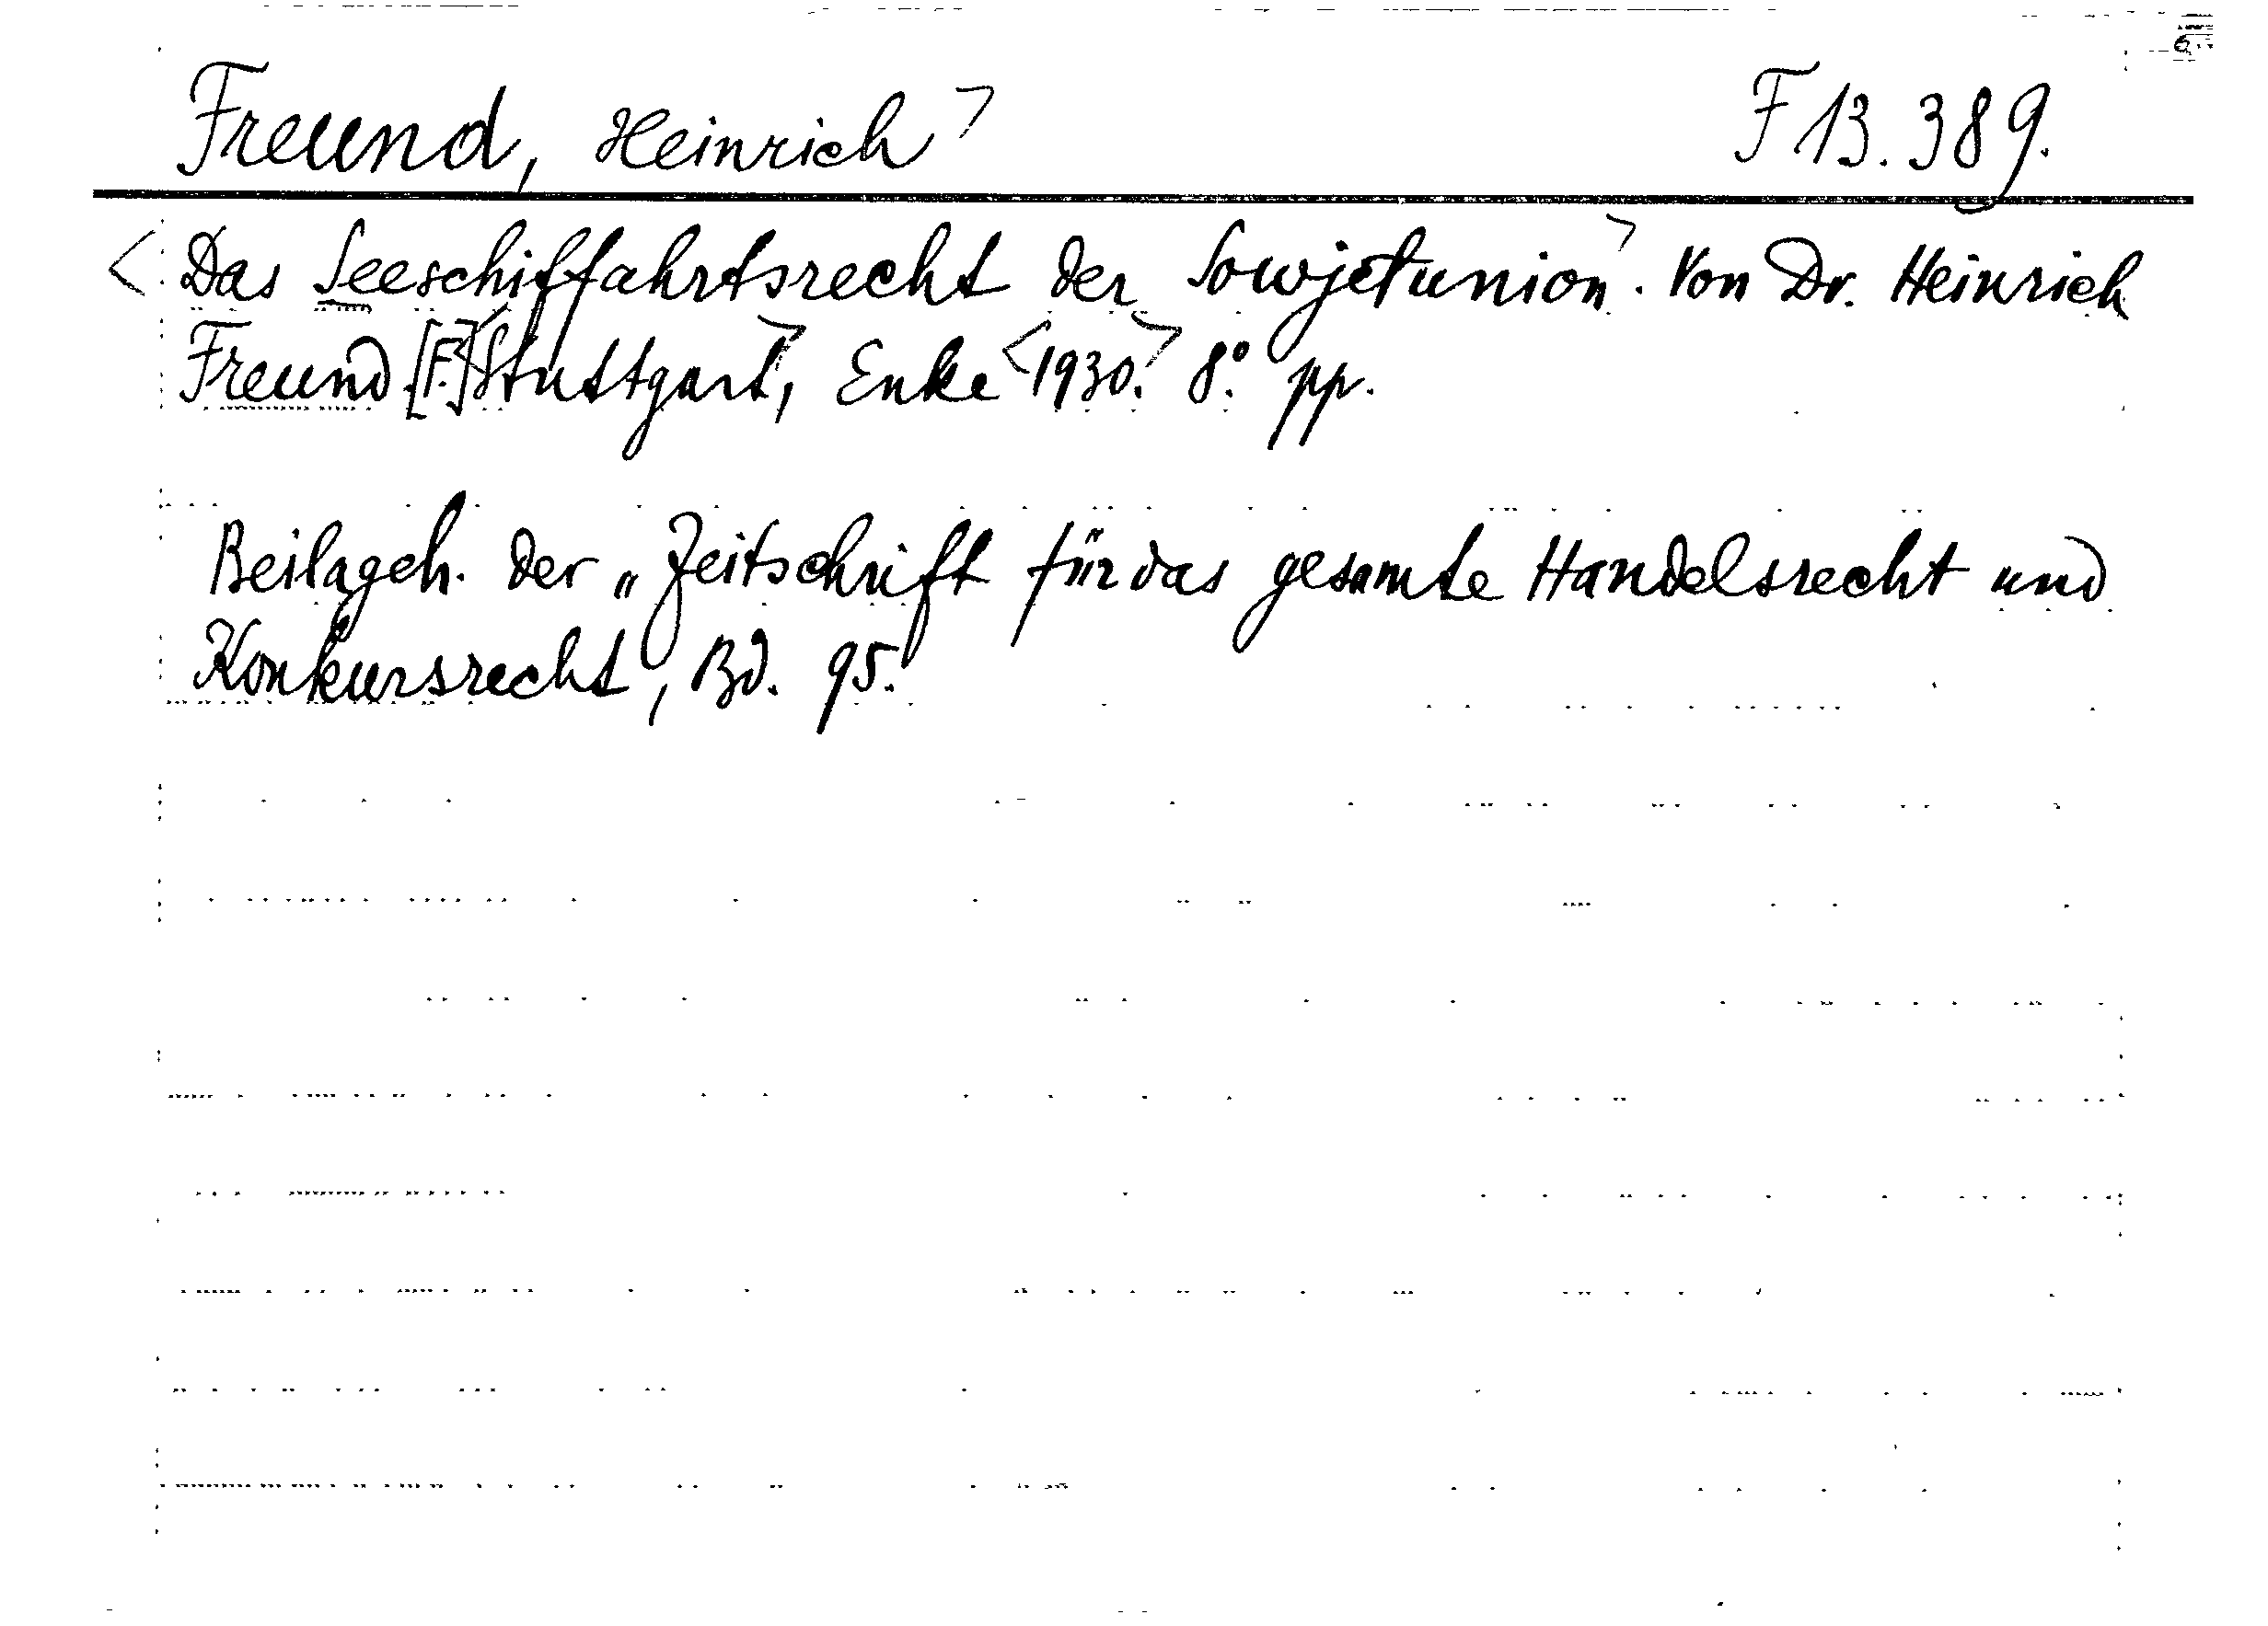 Freund, Heinrich> F 13.389.
<Das Seeschiffahrtsrecht der Sowjetunion>. Von Dr. Heinrich
Freund [F.] <Stuttgart>, Enke <1930.> 8°. pp.
Beilageh. der „Zeitschrift für das gesamte Handelsrecht und
Konkursrecht", Bd. 95.